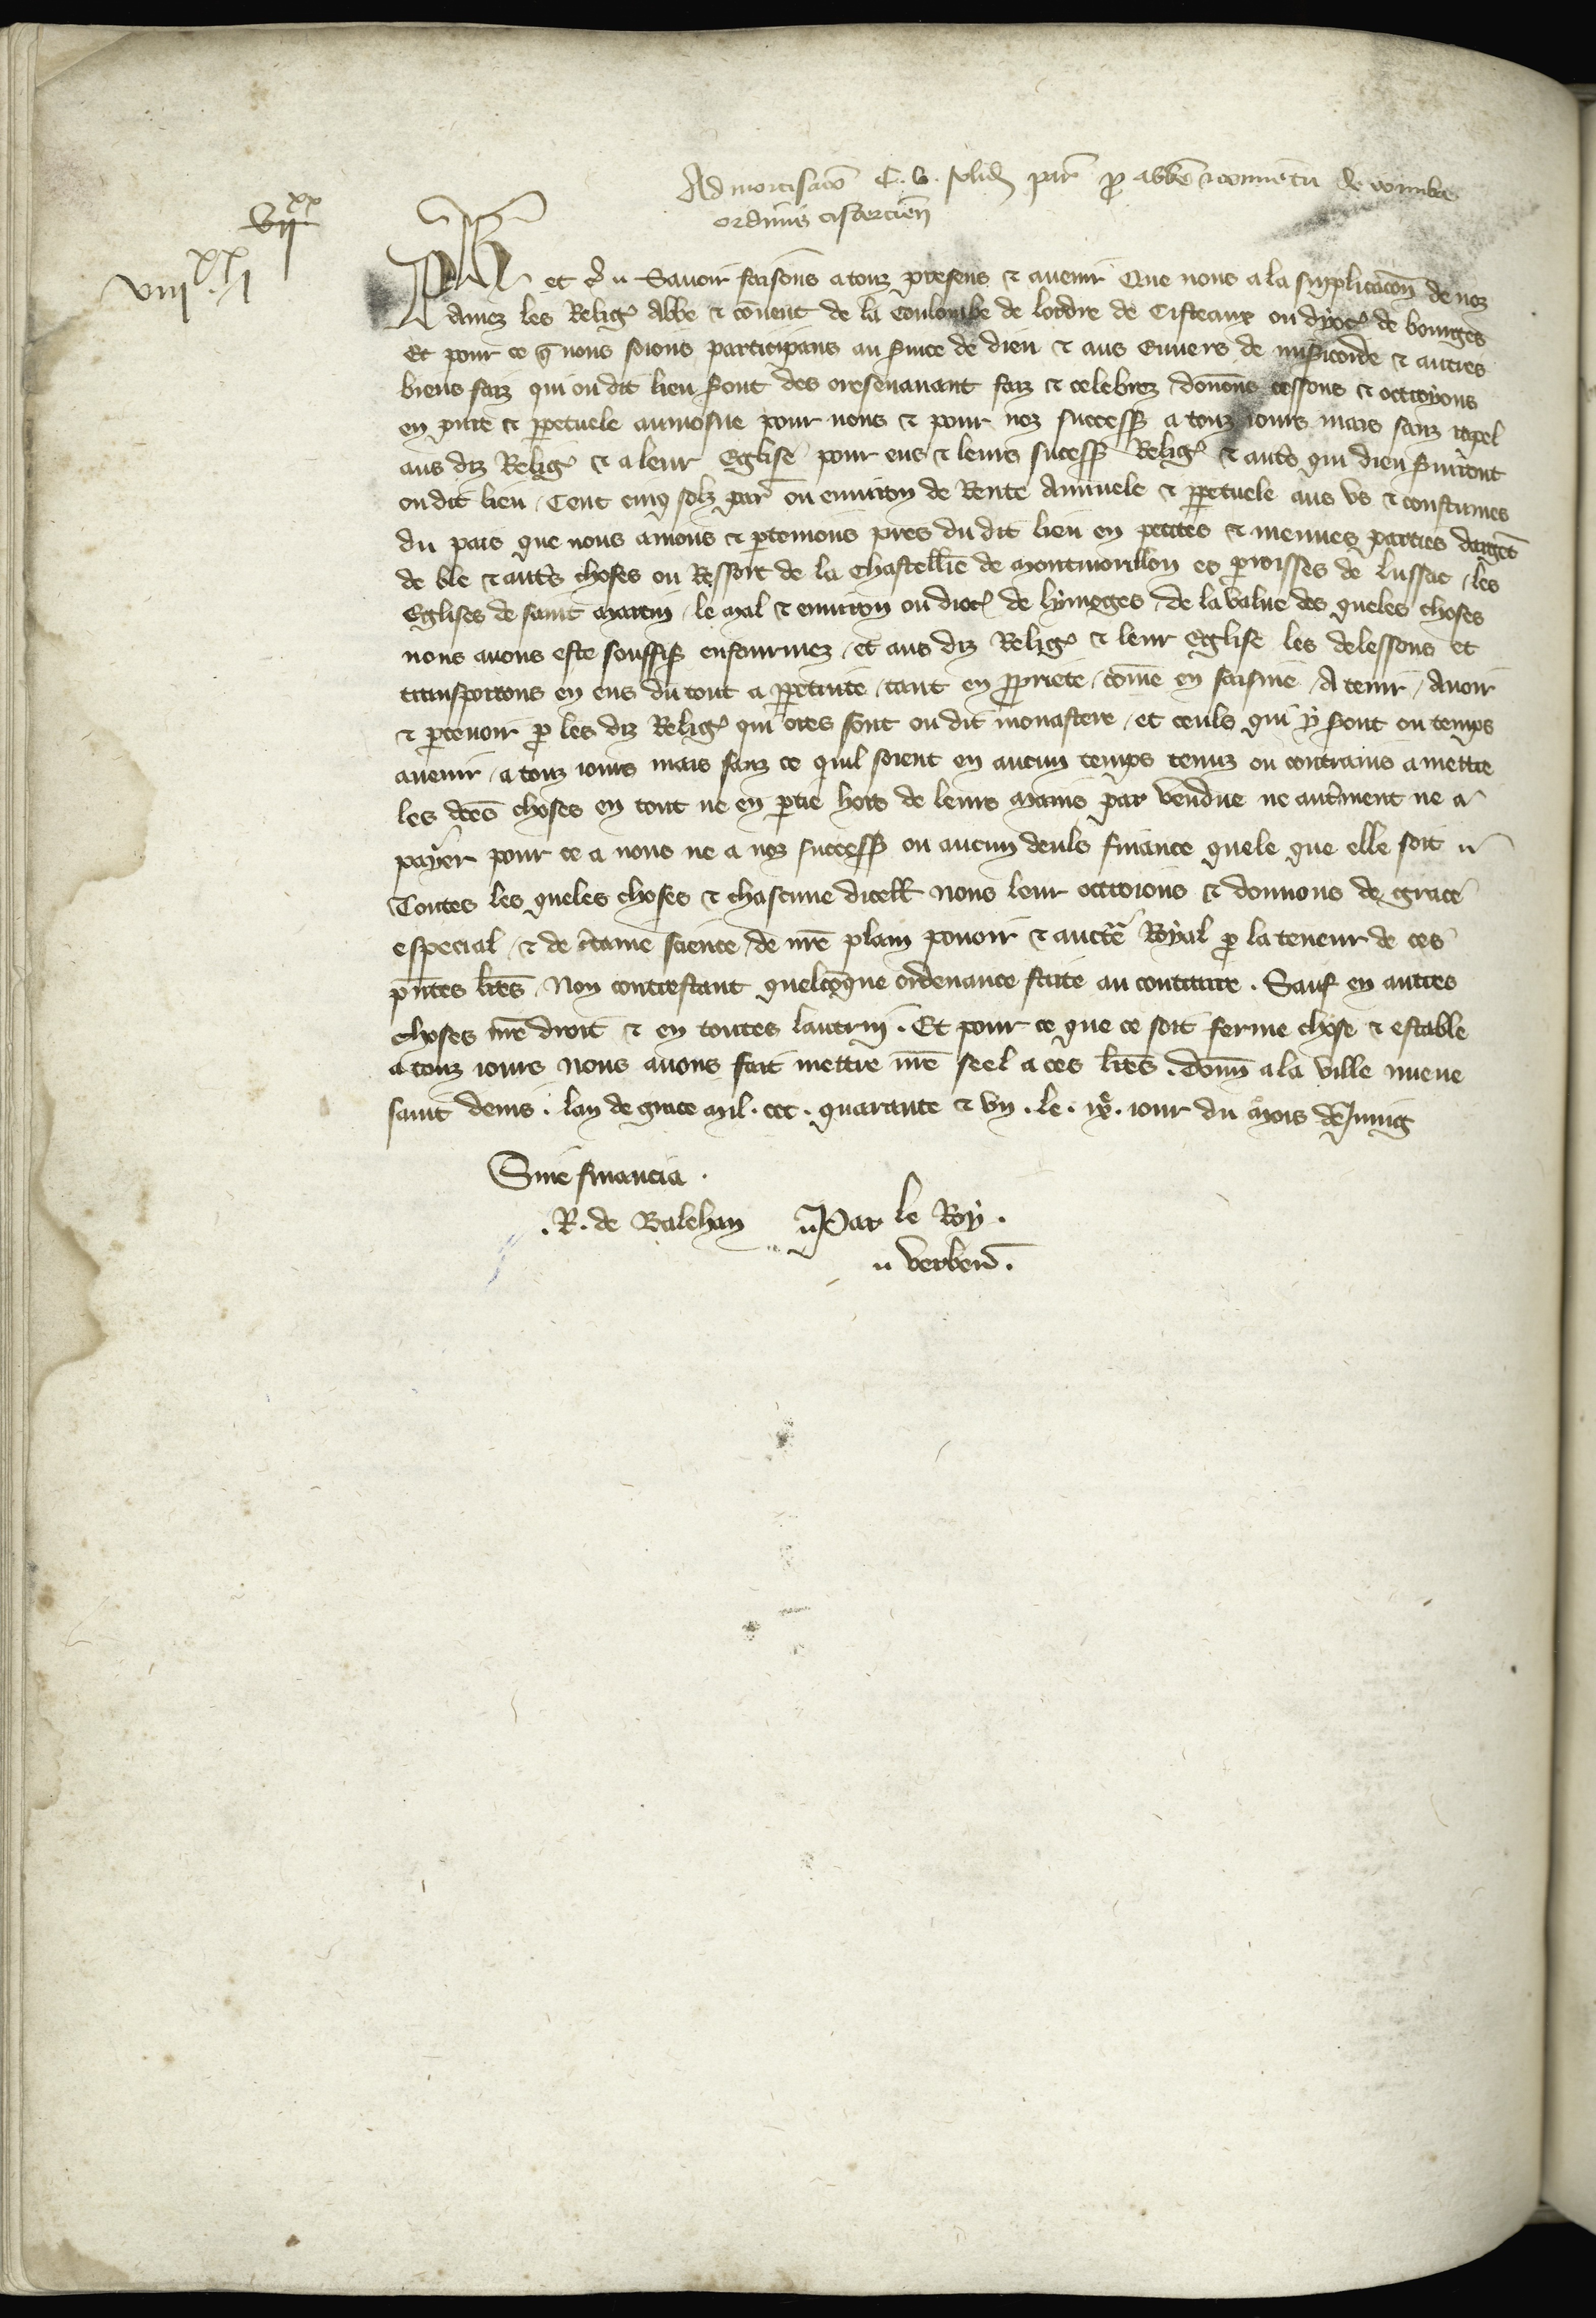 Admortisacio C. v. solid par pro abbe & conventu de columba
ordinis cistercien
vii xx
viii xx i
Ph et c Savoir faisons a touz presens & avenir Que nous a la supplicacion de noz
Amez les Relig Abbe & covent de la Coulombe de lordre de Cisteaux ou dyoc de bourges
Et pour ce q nous soions participans au svice de dieu & aus euvres de misicorde & autres
biens faiz qui ou dit lieu sont des oresenavant faiz & celebrez donnons cessons & octroyons
en pure & ppetuele aumosne pour nous & pour noz success a touz iours mais sanz rapel
aus diz Relig & a leur Eglise pour eus & leurs sucess Relig & auts qui dieu sviront
ou dit lieu Cent cinq solz par ou environ de Rente Annuele & ppetuele aus us & coustumes
du pais que nous avions & pcevions pres du dit lieu en petites & menues parties dargent
de ble & auts choses ou Ressort de la Chastellie de Montmorillon es proisses de lussac les
Eglises de saint Martin le Mal & environ ou dioc de Lymoges de la value des queles choses
nous avons este souffis enfourmez et aus diz Relig & leur Eglise les delessons et
transportons en eus du tout a ppetuite tant en ppriete come en saisine A tenir Avoir
& pcevoir p les diz Relig qui ores sont ou dit monastere et ceuls qui y sont ou temps
avenir a touz iours mais sanz ce quil soient en aucun temps tenuz ou contrains a mettre
les dces choses en tout ne en ptie hors de leurs mains par vendue ne autment ne a
payer pour ce a nous ne a noz success ou aucun deuls finance quele que elle soit
Toutes les queles choses & chascune dicell nous leur octroions & donnons de grace
especial & de ctaine science de nre plain pouoir & auctte Royal p la teneur de ces
pntes lres Non contrestant quelcoque ordenance faite au contraire . Sauf en autres
choses nre droit & en toutes lautruy . Et pour ce que ce soit ferme chose & estable
a touz iours nous avons fait mettre nre seel a ces lres . donn a la ville nueve
saint denis . lan de grace mil . ccc . quarante & un . le . ix . iour du mois de Juing
Sine financia .
. R . de Balehan Par le Roy .
verberi .